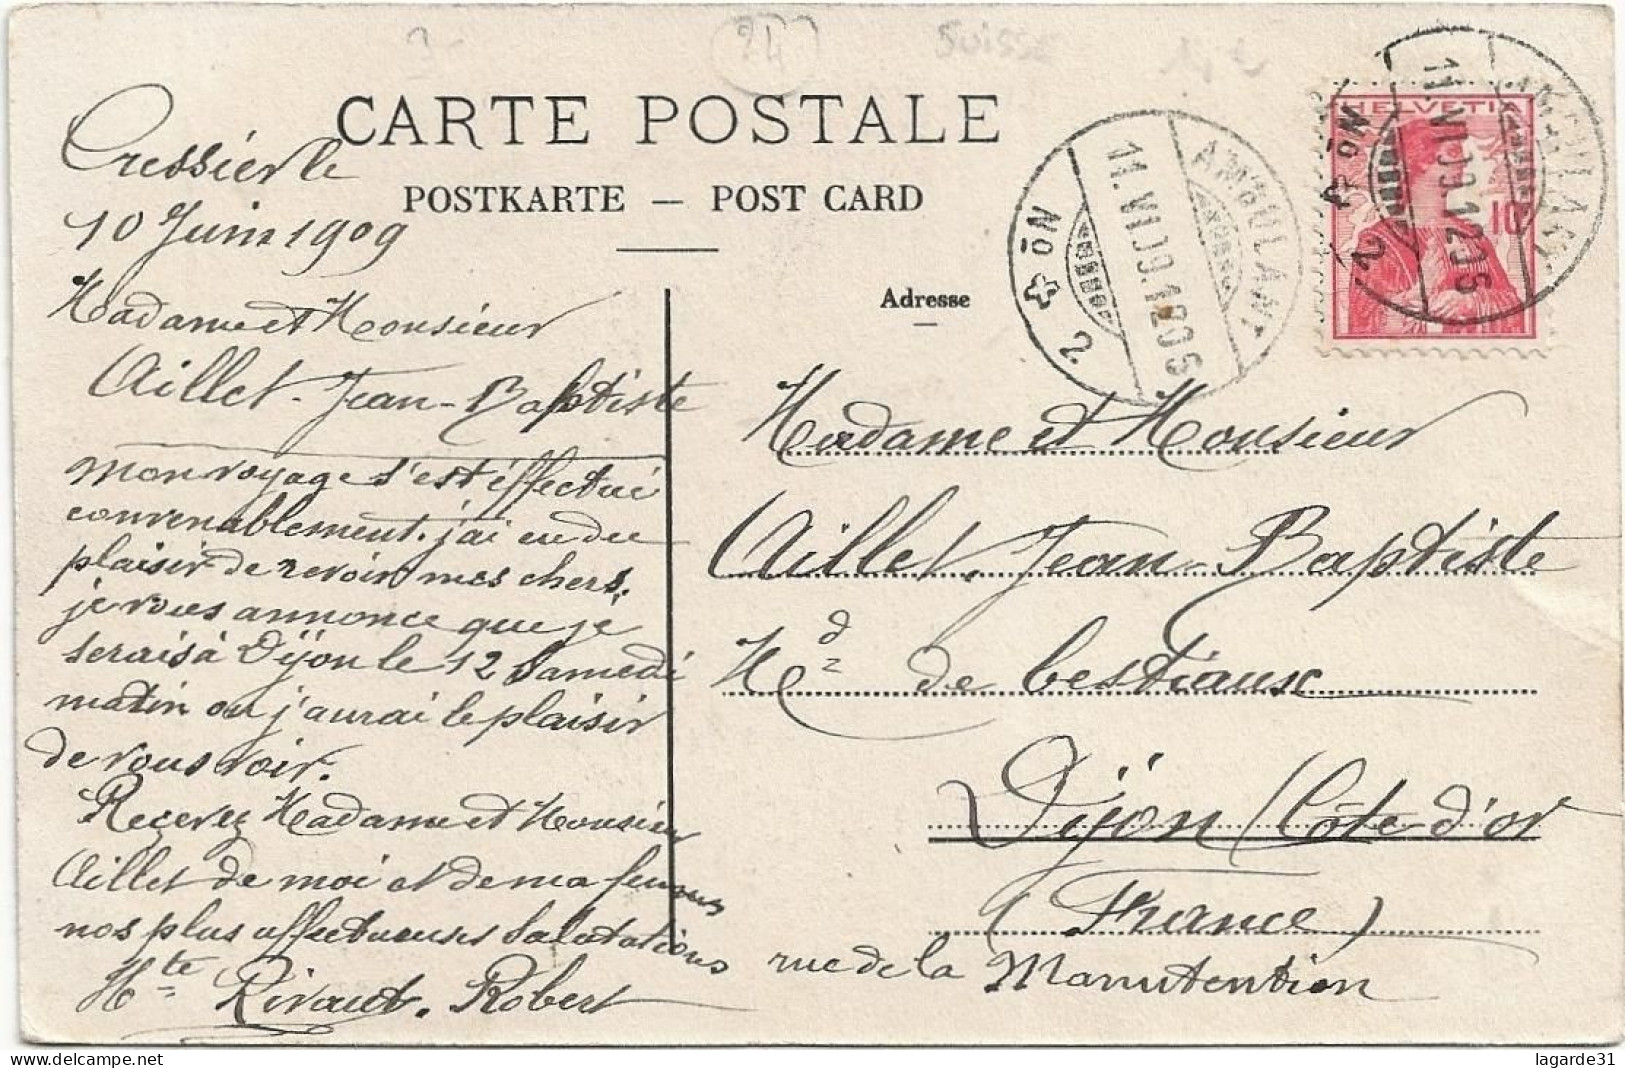 24
Suisse
CARTE POSTALE
POSTKARTE — POST CARD
Adresse
HELVETIA
10
AMBULANT
11.VI.09.1205
No 2
AMBULANT
11.VI.09.1205
No 2
Cressier le
10 Juin 1909
Madame et Monsieur
Aillet. Jean-Baptiste
Mon voyage s'est éffectué
convenablement. j'ai eu du
plaisir de revoir mes chers.
je vous annonce que je
serais à Dijon le 12 Samedi
matin ou j'aurai le plaisir
de vous voir.
Recevez Madame et Monsieur
Aillet de moi et de ma femme
nos plus affectueuses Salutations
Hte Rivaut. Robert
Madame et Monsieur
Aillet. Jean-Baptiste
Md de bestiaux
Dijon (Côte d'or
(France)
rue de la Manutention
lagarde31